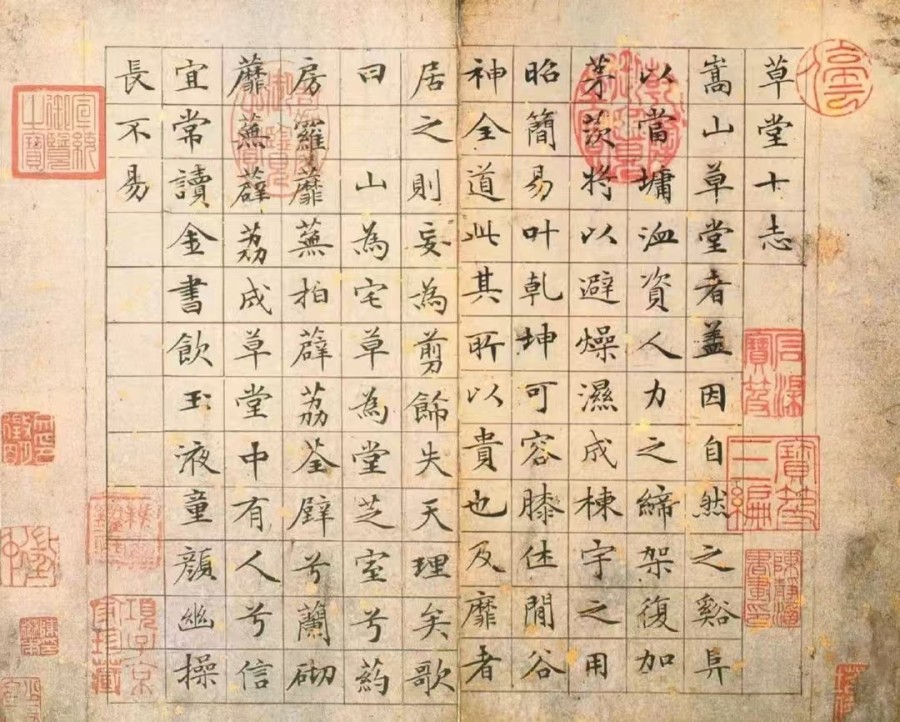 草堂十志
嵩山草堂者盖因自然之谿阜
以當墉洫資人力之締架復加
茅茨將以避燥濕成棟宇之用
昭簡易叶乹坤可容膝休閒谷
神全道此其所以貴也及靡者
居之則妄為剪餝失天理矣歌
曰 山為宅草為堂芝室兮葯
房羅蘼蕪拍薜荔荃壁兮蘭砌
蘼蕪薜荔成草堂中有人兮信
宜常讀金書飲玉液童顔幽操
長不易
石渠寶笈
寶笈三編
宣統御覽之寶
項子京家珍藏